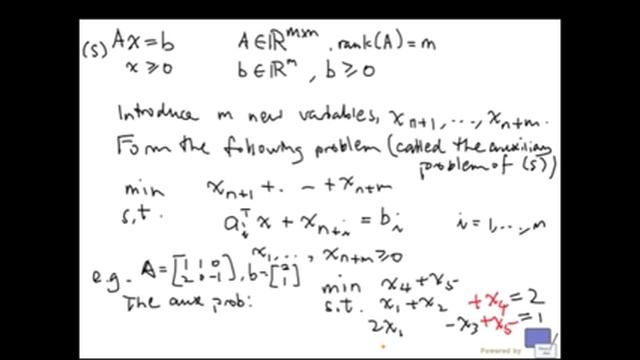 (S) Ax = b A ∈ ℝ^{m×n}, rank(A) = m
x ≥ 0 b ∈ ℝ^m, b ≥ 0
Introduce m new variables, x_{n+1}, ..., x_{n+m}.
Form the following problem (called the auxiliary
problem of (S))
min x_{n+1} + . - + x_{n+m}
s.t. a_i^T x + x_{n+i} = b_i i = 1, .., m
x_1, ..., x_{n+m} ≥ 0
e.g. A = [1 1 0; 2 0 -1], b = [2; 1] min x_4 + x_5
The aux prob: s.t. x_1 + x_2 + x_4 = 2
2x_1 - x_3 + x_5 = 1
Powered by